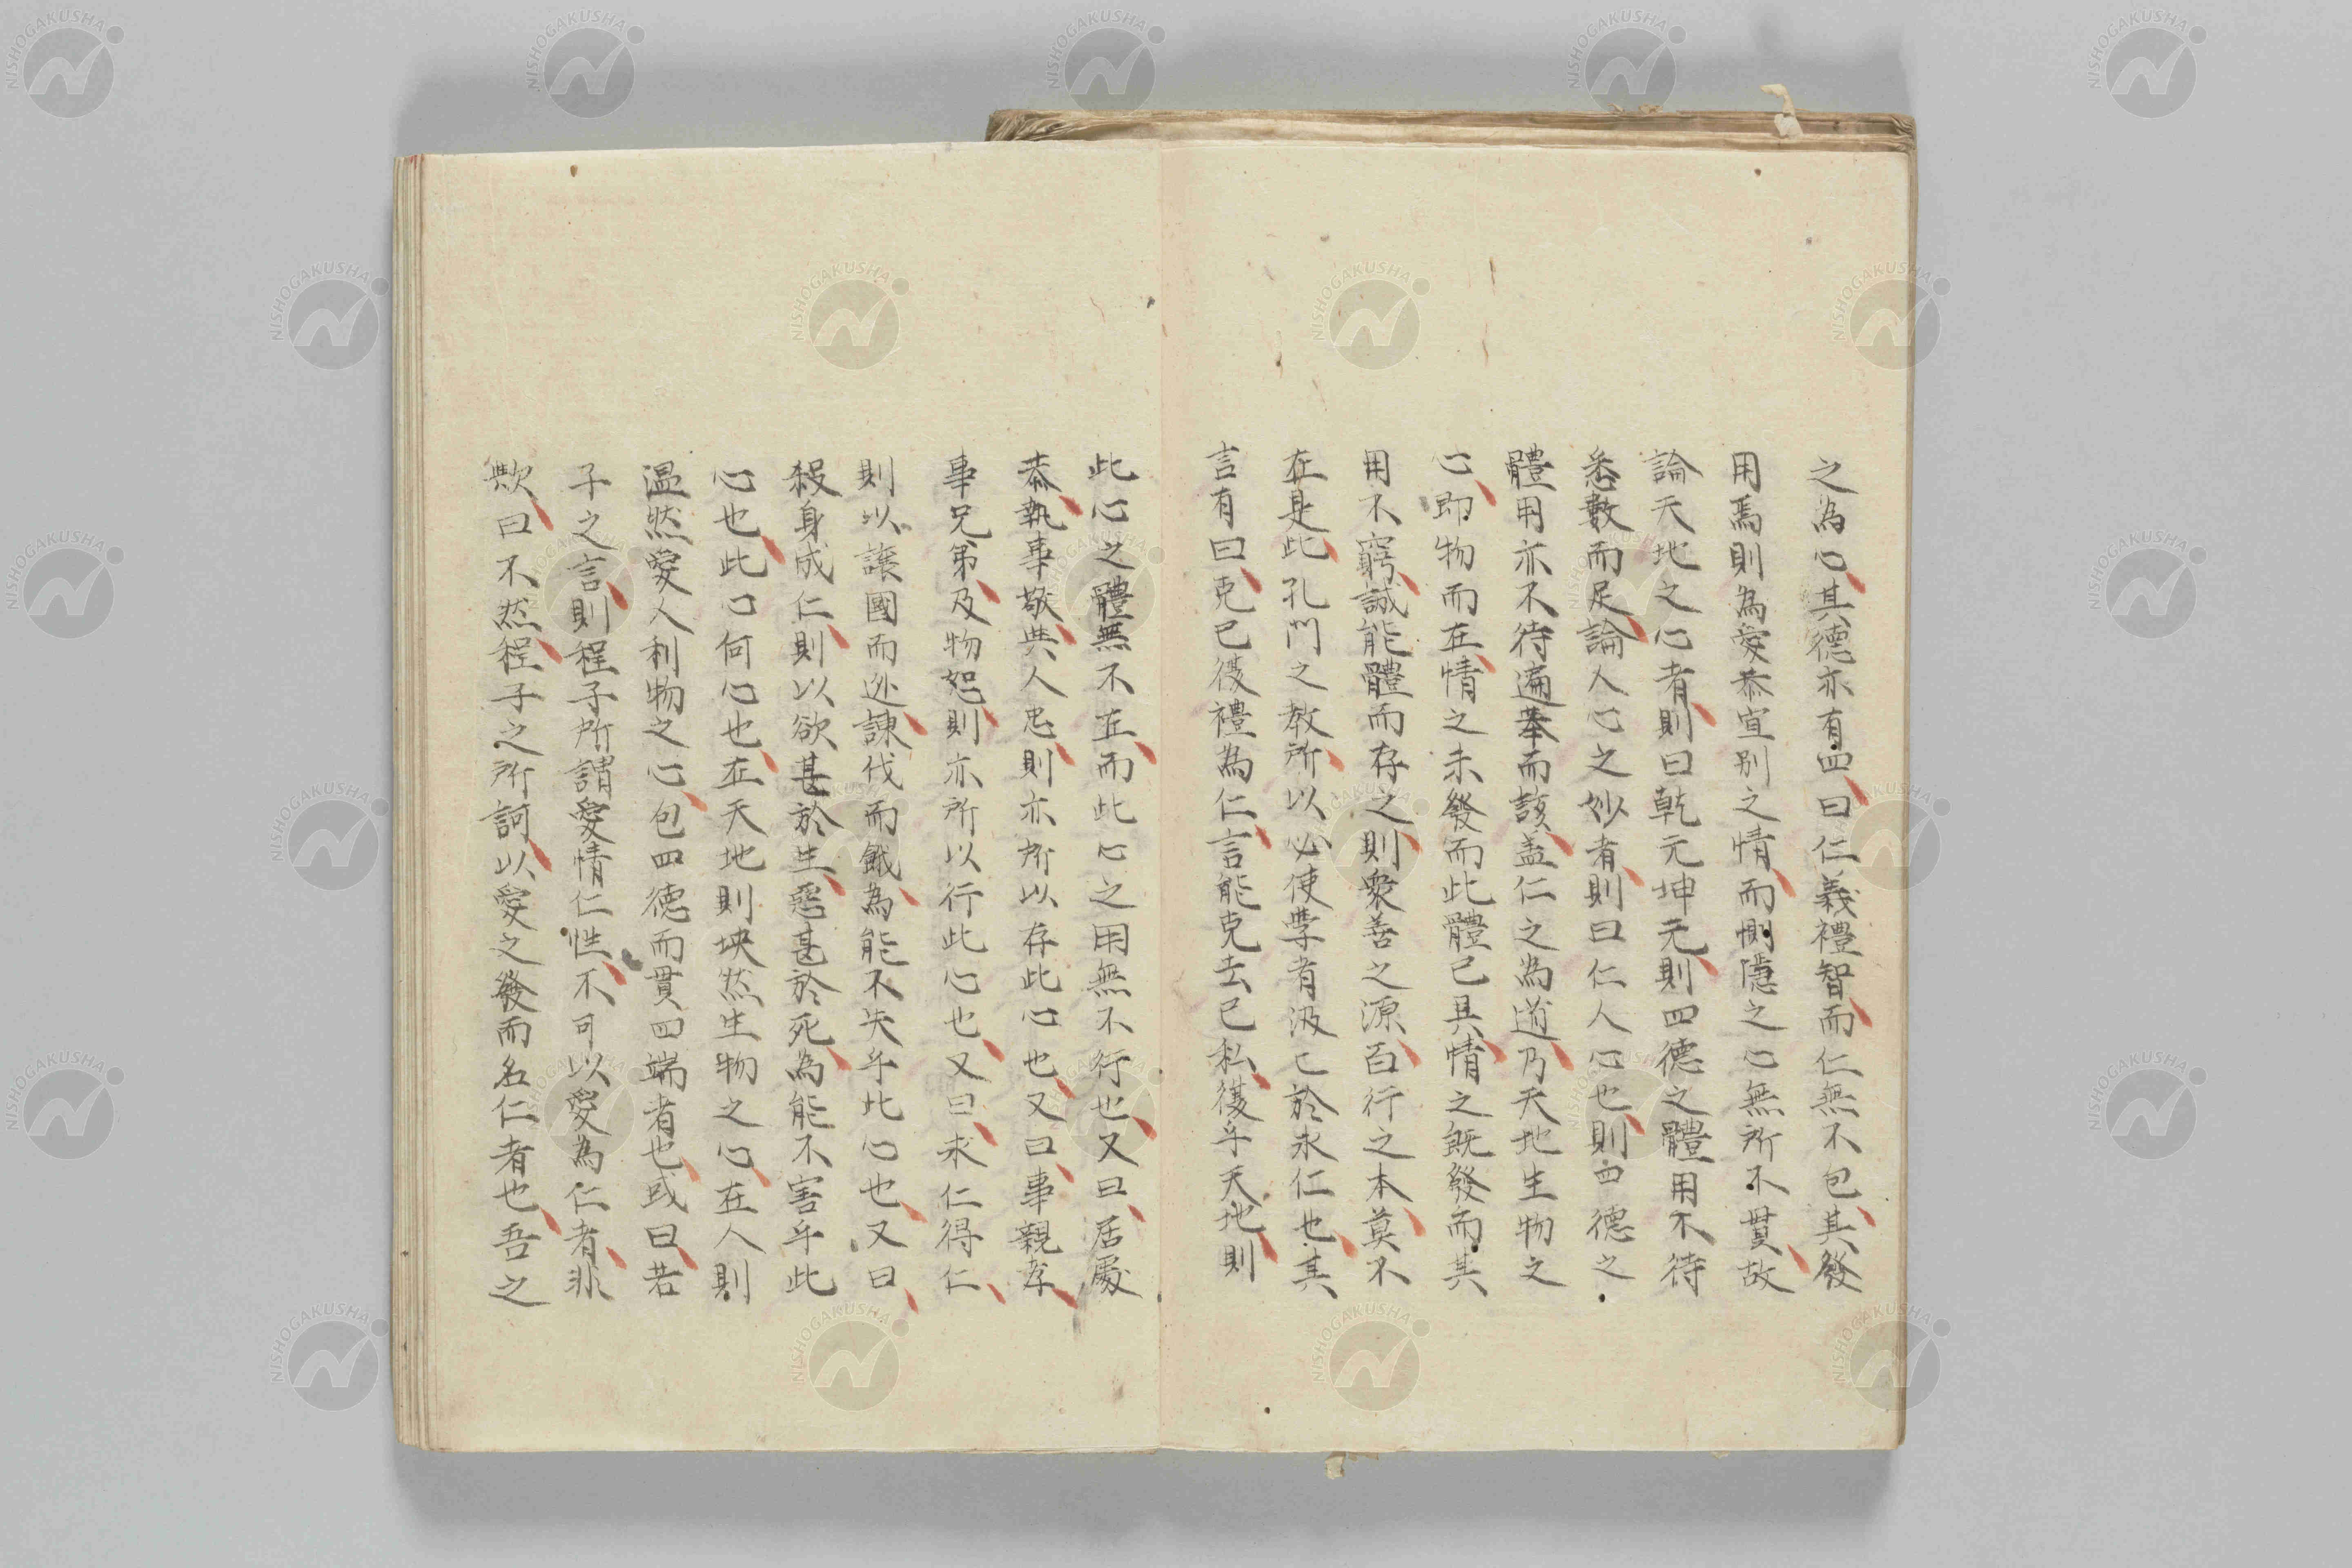 之為心其德亦有四曰仁義禮智而仁無不包其發
用焉則為愛恭宜別之情而惻隱之心無所不貫故
論天地之心者則曰乾元坤元則四德之體用不待
悉數而足論人心之妙者則曰仁人心也則四德之
體用亦不待遍舉而該盖仁之為道乃天地生物之
心即物而在情之未發而此體已具情之既發而其
用不窮誠能體而存之則衆善之源百行之本莫不
在是此孔門之教所以必使學者汲〻於求仁也其
言有曰克己復禮為仁言能克去己私復乎天地則
此心之體無不在而此心之用無不行也又曰居處
恭執事敬與人忠則亦所以存此心也又曰事親孝
事兄弟及物恕則亦所以行此心也又曰求仁得仁
則以讓國而逃諫伐而餓為能不失乎此心也又曰
殺身成仁則以欲甚於生惡甚於死為能不害乎此
心也此心何心也在天地則坱然生物之心在人則
温然愛人利物之心包四德而貫四端者也或曰若
子之言則程子所謂愛情仁性不可以愛為仁者非
歟曰不然程子之所訶以愛之發而名仁者也吾之
NISHOGAKUSHA